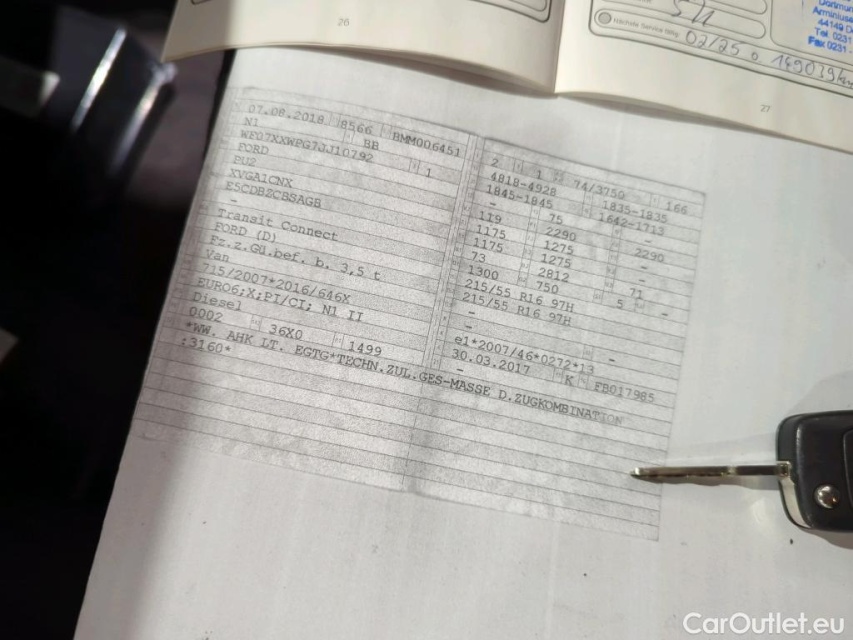 26
SU
Nächste Service fällig 02/25 o. 149039km
Dortmund
Arminiuss
44149 Do
Tel. 0231
Fax 0231
27
07.08.2018 8566 BMM006451
N1 BB
WF07XXWPG7JJ10792 1
FORD
PU2
XVGA1CNX
E5CDBZCBSAGB
-
Transit Connect
FORD (D)
Fz.z.Gü.bef. b. 3,5 t
Van
715/2007*2016/646X
EURO6;X;PI/CI; N1 II
Diesel
0002 36X0 1499
*WW. AHK LT. EGTG*TECHN.ZUL.GES-MASSE D.ZUGKOMBINATION
:3160*
2 1 74/3750 166
4818-4928 1835-1835
1845-1845 1642-1713
- 75 -
119 2290 2290
1175 1275 -
1175 1275 -
73 2812 71
1300 750 5 -
215/55 R16 97H
215/55 R16 97H
- -
e1*2007/46*0272*13
30.03.2017 K FB017985
-
CarOutlet.eu